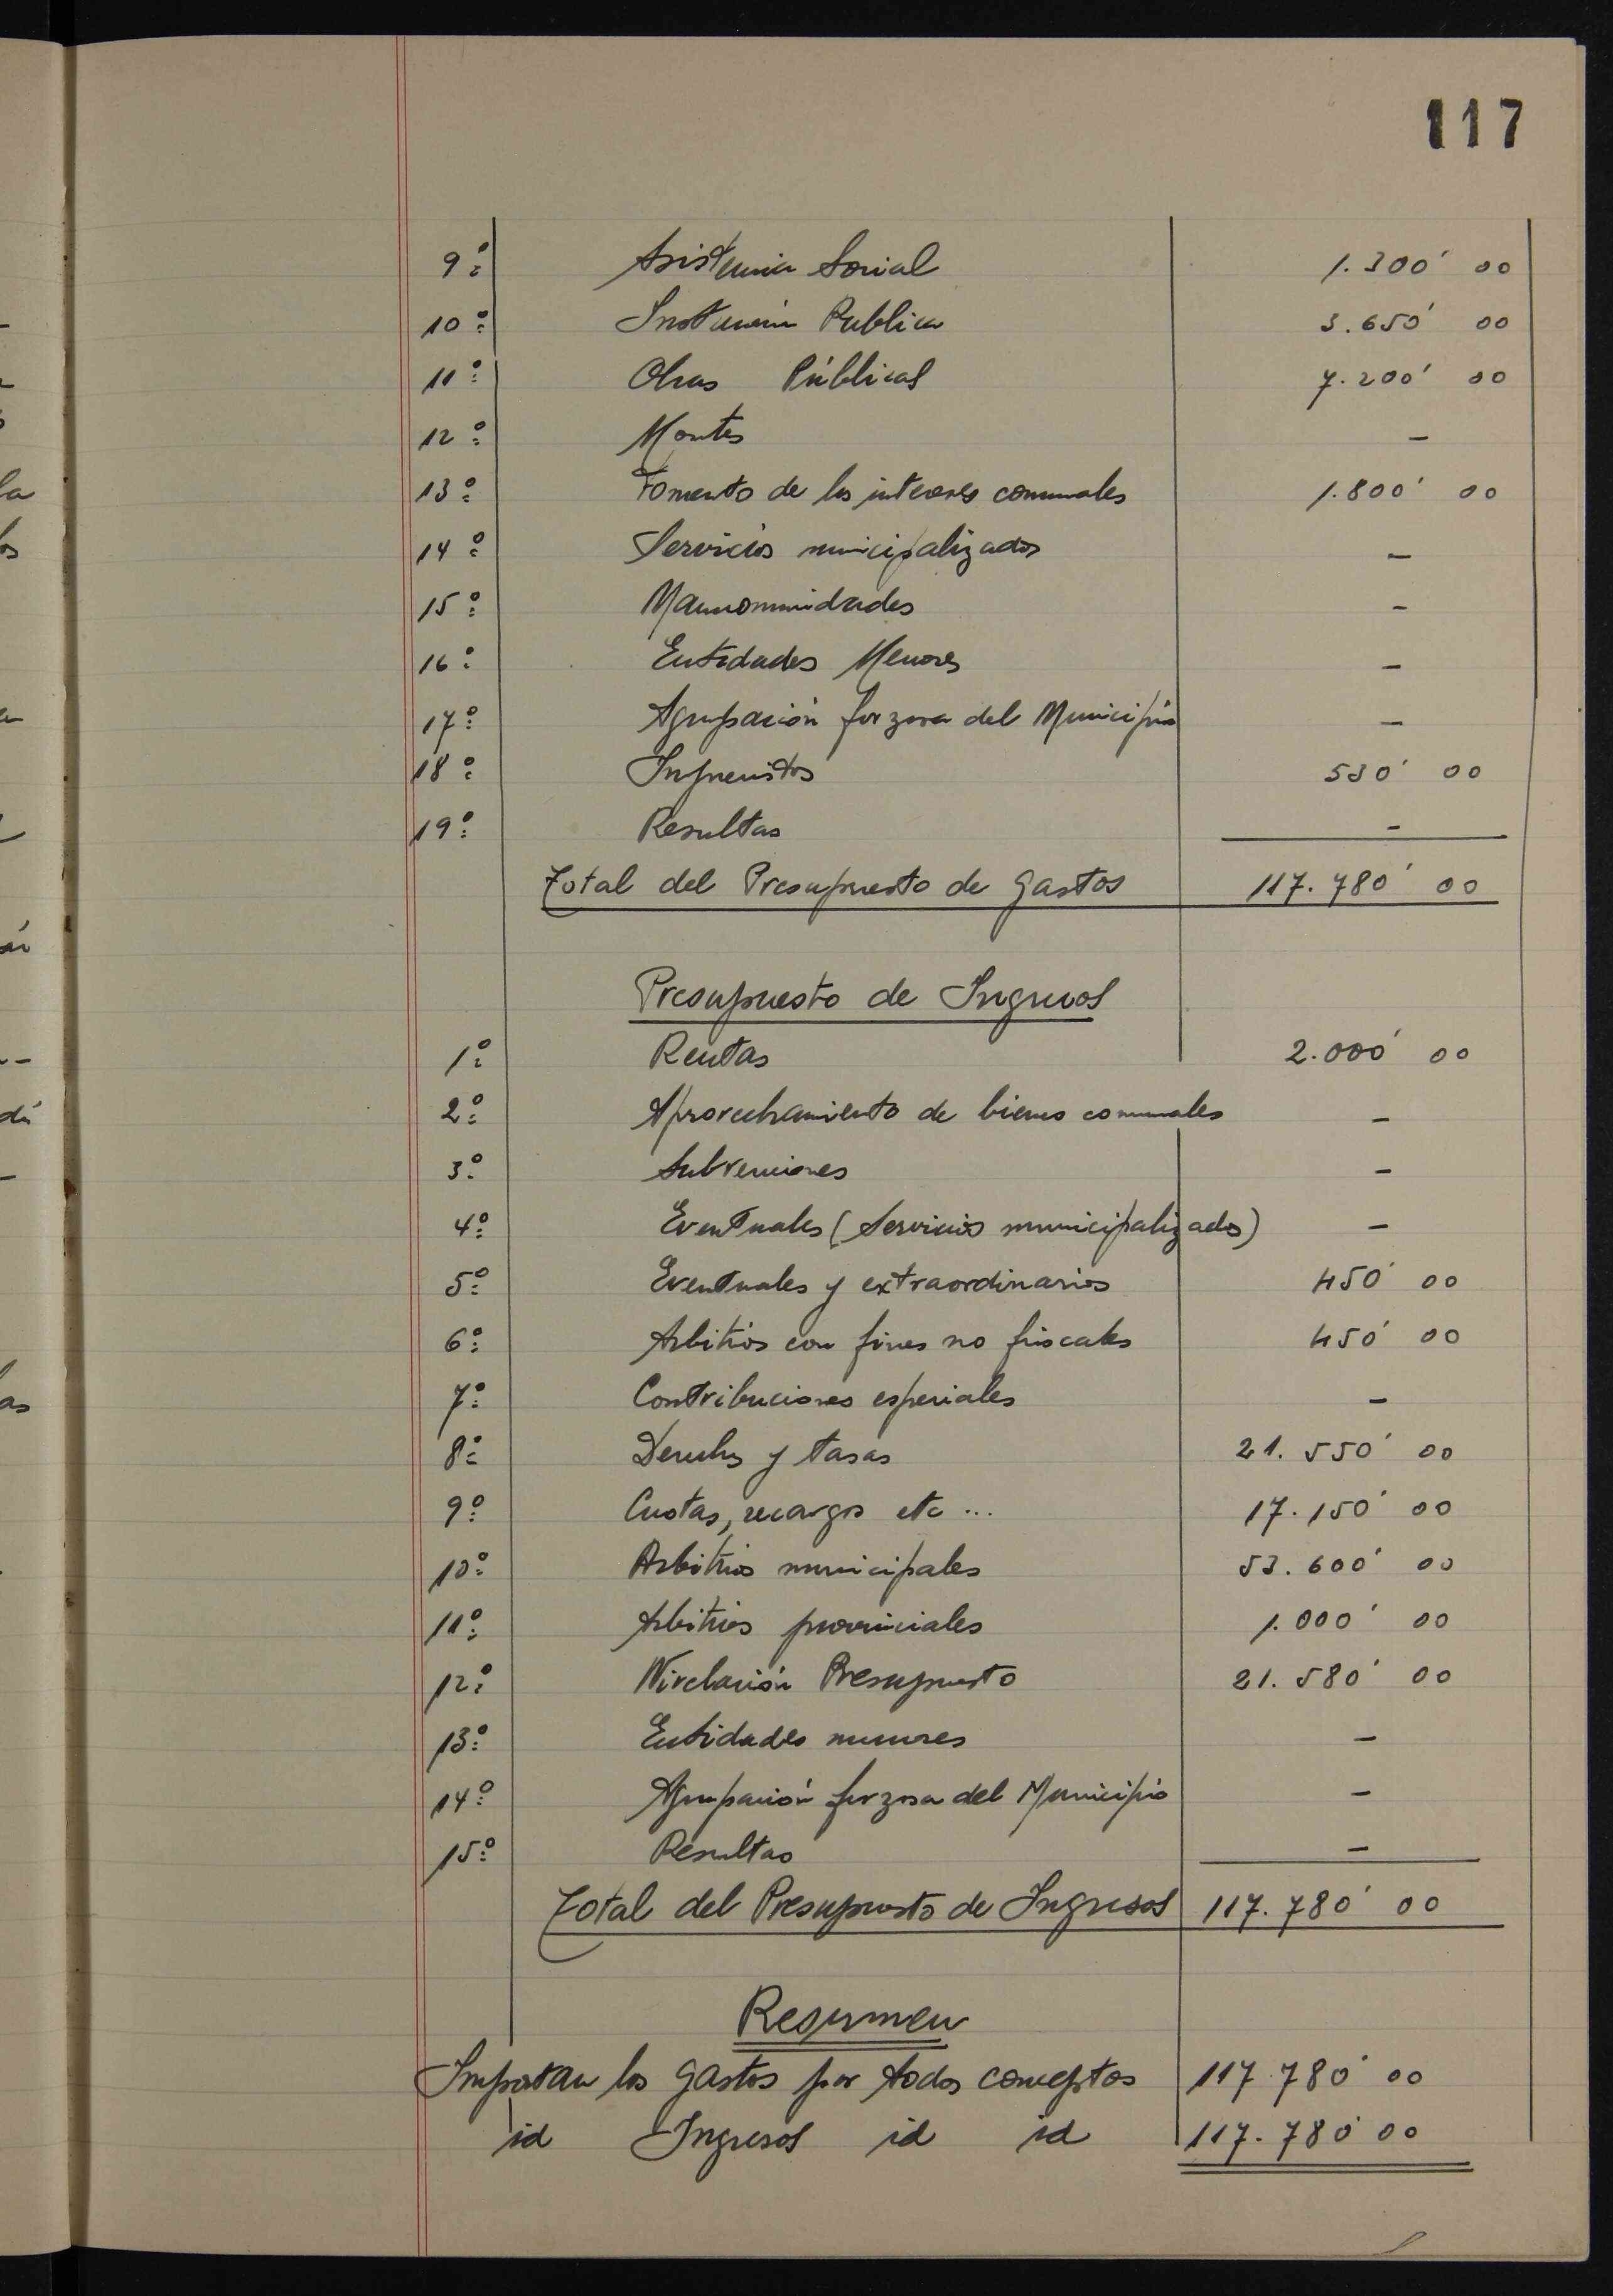 117
9º Asistencia Social 1.300' 00
10º Instrucción Publica 3.650' 00
11º Obras Públicas 7.200' 00
12º Montes -
13º Fomento de los intereses comunales 1.800' 00
14º Servicios municipalizados -
15º Mancomunidades -
16º Entidades Menores -
17º Agrupación forzosa del Municipio -
18º Imprevistos 530' 00
19º Resultas -
Total del Presupuesto de Gastos 117.780' 00
Presupuesto de Ingresos
1º Rentas 2.000' 00
2º Aprovechamiento de bienes comunales -
3º Subvenciones -
4º Eventuales (Servicios municipalizados) -
5º Eventuales y extraordinarios 450' 00
6º Arbitrios con fines no fiscales 450' 00
7º Contribuciones especiales -
8º Derechos y tasas 21.550' 00
9º Cuotas, recargos etc... 17.150' 00
10º Arbitrios municipales 53.600' 00
11º Arbitrios provinciales 1.000' 00
12º Nivelación Presupuesto 21.580' 00
13º Entidades menores -
14º Agrupación forzosa del Municipio -
15º Resultas -
Total del Presupuesto de Ingresos 117.780' 00
Resumen
Importan los gastos por todos conceptos 117.780' 00
id Ingresos id id 117.780' 00